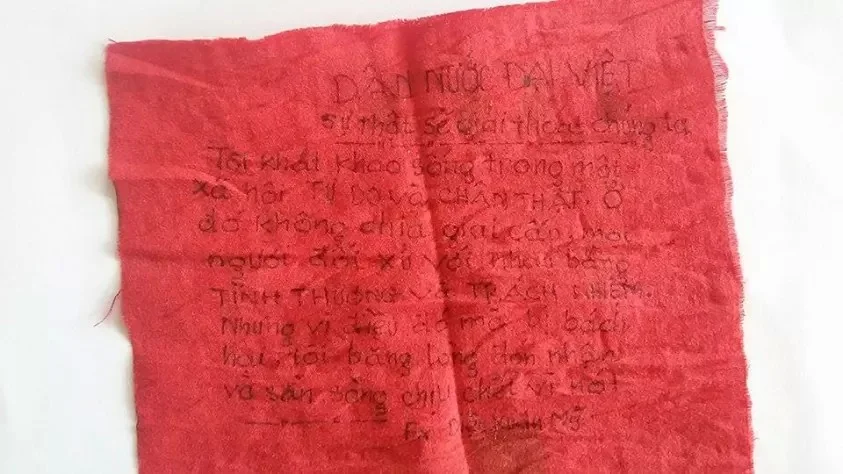 DÂN NƯỚC ĐẠI VIỆT
Sự thật sẽ giải thoát chúng ta
Tôi khát khao sống trong một
xã hội TỰ DO VÀ CHÂN THẬT. Ở
đó không chia giai cấp, mọi
người đối xử với nhau bằng
TÌNH THƯƠNG VÀ TRÁCH NHIỆM.
Nhưng vì điều đó mà bị bách
hại, tôi bằng lòng đón nhận
và sẵn sàng chịu chết vì nó!